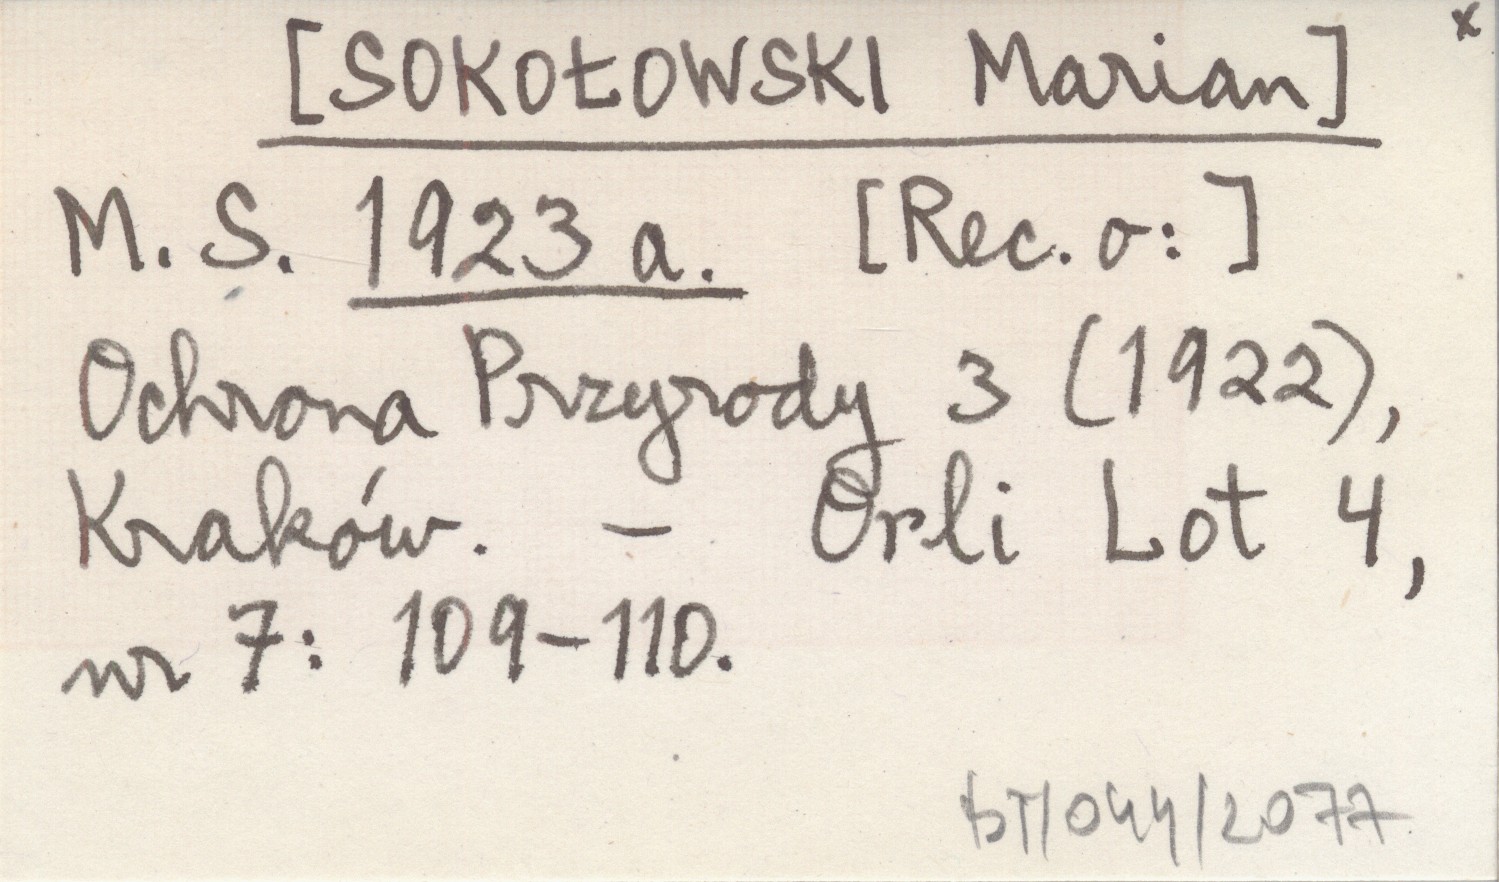 [SOKOŁOWSKI Marian] x
M. S. 1923 a. [Rec. o: ]
Ochrona Przyrody 3 (1922),
Kraków. – Orli Lot 4,
nr 7: 109–110.
bT/044/2077